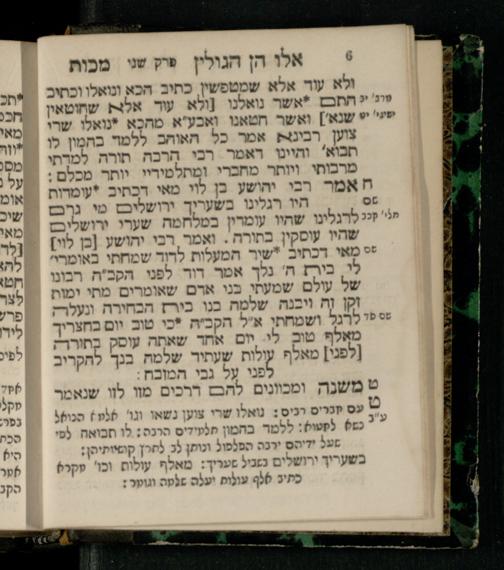 6 אלו הן הגולין פרק שני מכות
ולא עוד אלא שמטפשין כתיב הכא ונואלו וכתיב
התם *אשר נואלנו [ולא עוד אלא שחוטאין
שנא'] ואשר חטאנו ואבע"א מהכא *נואלו שרי
צוען רבינא אמר כל האוהב ללמד בהמון לו
תבוא' והיינו דאמר רבי הרבה תורה למדתי
מרבותי ויותר מחברי ומתלמידיי יותר מכלם:
ח אמר רבי יהושע בן לוי מאי דכתיב *עומדות
היו רגלינו בשעריך ירושלים מי גרם
לרגלינו שהיו עומדין במלחמה שערי ירושלים
שהיו עוסקין בתורה. ואמר רבי יהושע [בן לוי]
מאי דכתיב *שיר המעלות לדוד שמחתי באומרי'
לי בית ה' נלך אמר דוד לפני הקב"ה רבונו
של עולם שמעתי בני אדם שאומרים מתי ימות
זקן זה ויבנה שלמה בנו בית הבחירה ונעלה
לרגל ושמחתי א"ל הקב"ה *כי טוב יום בחצריך
מאלף טוב לי יום אחד שאתה עוסק בתורה
[לפני] מאלף עולות שעתיד שלמה בנך להקריב
לפני על גבי המזבח:
ט משנה ומכוונים להם דרכים מזו לזו שנאמר
נואלו שרי צוען נשאו וגו'
ללמד בהמון תלמידים הרבה: לו תבואה לפי
שעל ידיהם ירבה הפלפול ונותן לב לתרץ קושיותיהן:
בשעריך ירושלים בשביל שעריך: מאלף עולות וכו' מקרא
כתיב אלף עולות יעלה שלמה וגומר: